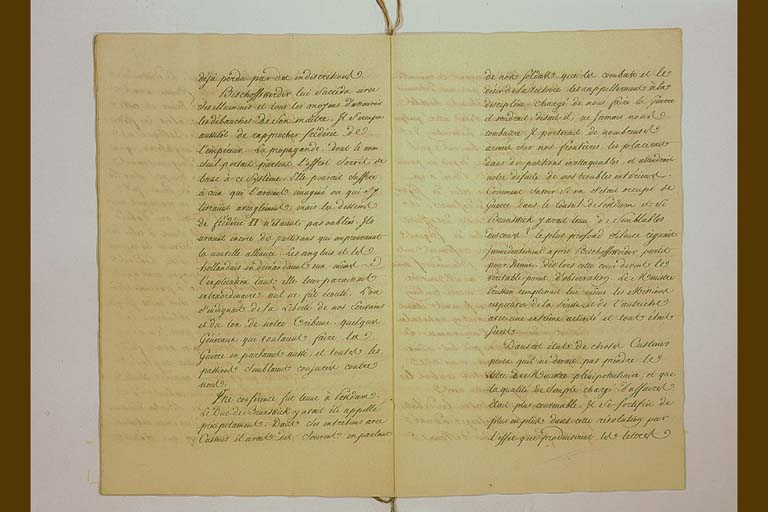 déja perdu par des indiscrétions.
Bischoffswerder lui succéda avec
ses illuminés et tous les moyens d'assouvir
les débauches de son maître. Il s'occupa
aussitôt de rapprocher frédéric de
l'empereur. La propagande, dont le nom
seul portait partout l'effroi servit de
base à ce systême. Elle pouvait suffire
à ceux qui l'avaient imaginé ou qui s'y
livraient aveuglément; mais les desseins
de frédéric II n'étaient pas oubliés. Ils
avaient encore des partisans qui improuvaient
la nouvelle alliance. Les anglais et les
hollandais en demandaient eux même
l'explication tant elle leur paraissait
extraordinaire nul ne fut écouté. L'on
s'indignait de la liberté de nos Ecrivains
et du ton de notre Tribune. quelques
Généraux qui voulaient faire la
Guerre en parlaient aussi et toutes les
passions semblaient conjurées contre
nous.
Une conférence fut tenue à Potsdam.
Le Duc de Brunswick y avait été appellé
précipitamment. Dans ses entretiens avec
Custines il avait dit souvent en parlant
de nos soldats que les combats et le
désir de la victoire les rappelleraient à la
discipline chargé de nous faire la Guerre
il voudrait, disait-il, ne jamais nous
combattre. Il porterait de nombreuses
armées sur nos frontières, les placerait
dans des positions inattaquables, et attendrait
notre défaite de nos troubles intérieurs.
Comment savoir si on s'était occupé de
Guerre dans le Conseil de Potsdam et si
Brunswick y avait tenu de semblables
discours? le plus profond silence régnait
Immédiatement après Bischoffswerder partit
pour Vienne. dès lors cette cour devint le
véritable point d'observation. Le Ministre
Prussien remplissait lui même les missions
respectives de la Prusse et de l'autriche
avec une extrême activité et tout était
secret.
Dans cet état de choses Custines
pensa qu'il ne devait pas prendre le
titre de Ministre plénipotentiaire, et que
la qualité de simple chargé d'affaires
était plus convenable. Il se fortifia de
plus en plus dans cette résolution par
l'effet que produisirent les lettres